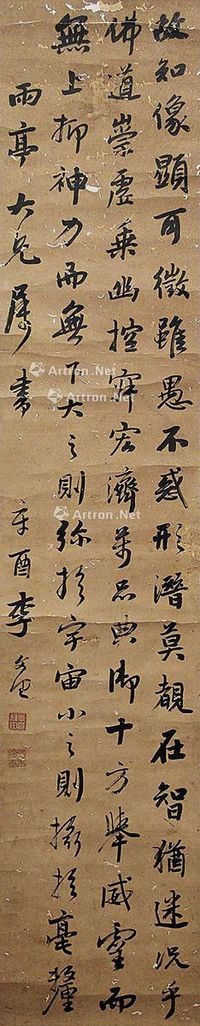 故知像顯可徵雖愚不惑形潛莫覩在智猶迷況乎
佛道崇虛乘幽控寂宏濟萬品典御十方舉威靈而
無上抑神力而無下大之則彌於宇宙小之則攝於毫釐
雨亭大兄屬書 辛酉李
Artron.Net
Artron.Net
Artron.Net
Artron.Net